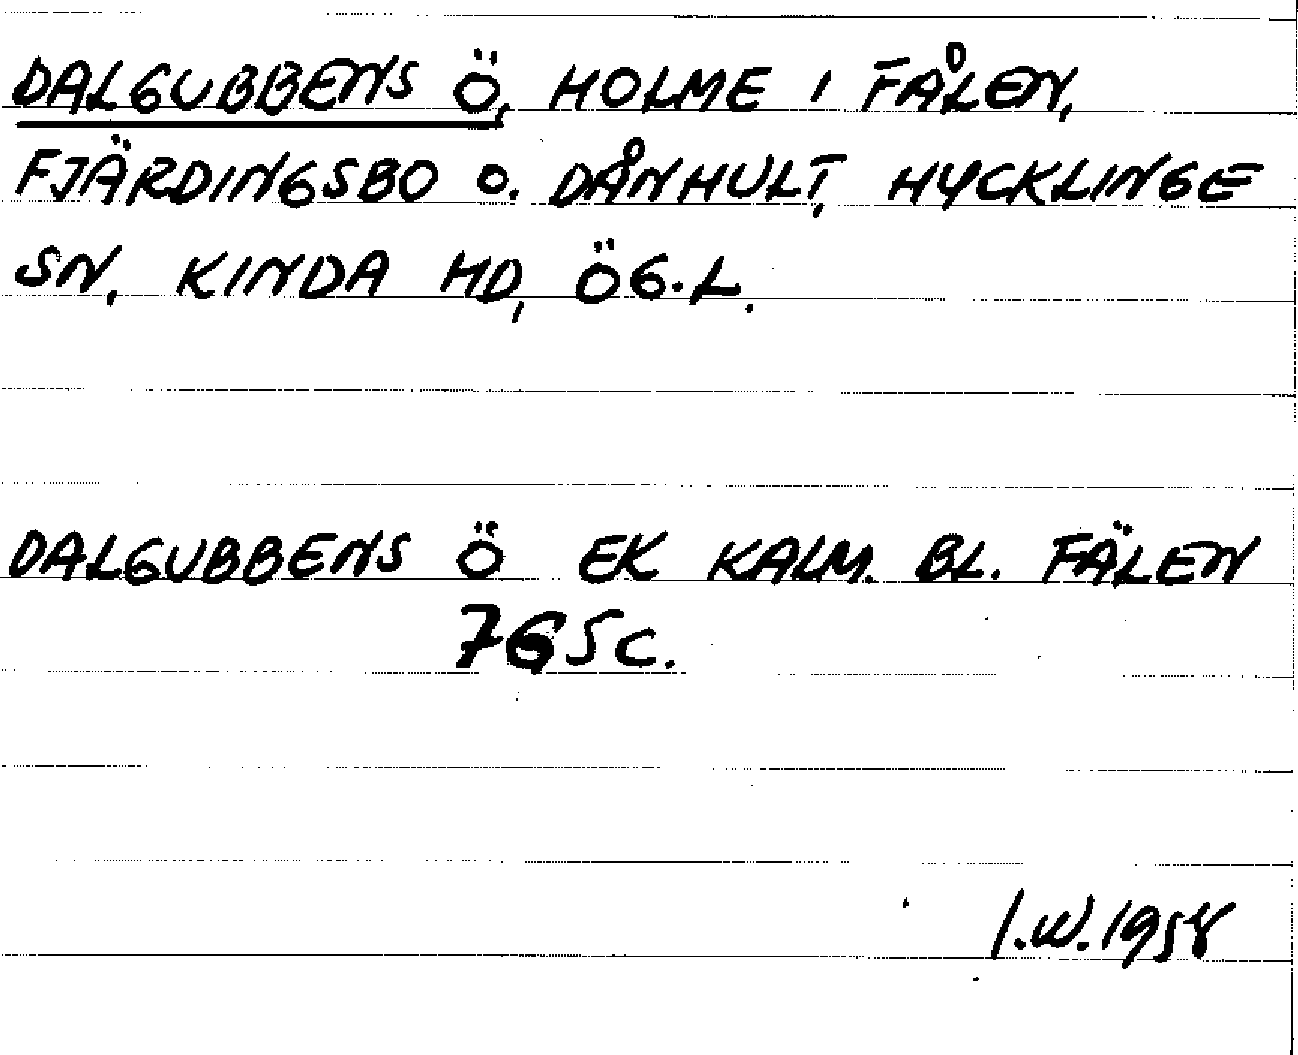 DALGUBBENS Ö, HOLME I FÅLEN,
FJÄRDINGSBO O. DÅNHULT, HYCKLINGE
SN, KINDA HD, ÖG.L.
DALGUBBENS Ö EK KALM. BL. FÄLEN
765C.
I.W.1958